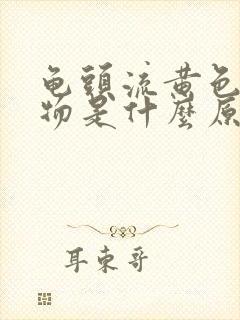 龟頭流黄色
物是什麼原
耳東哥